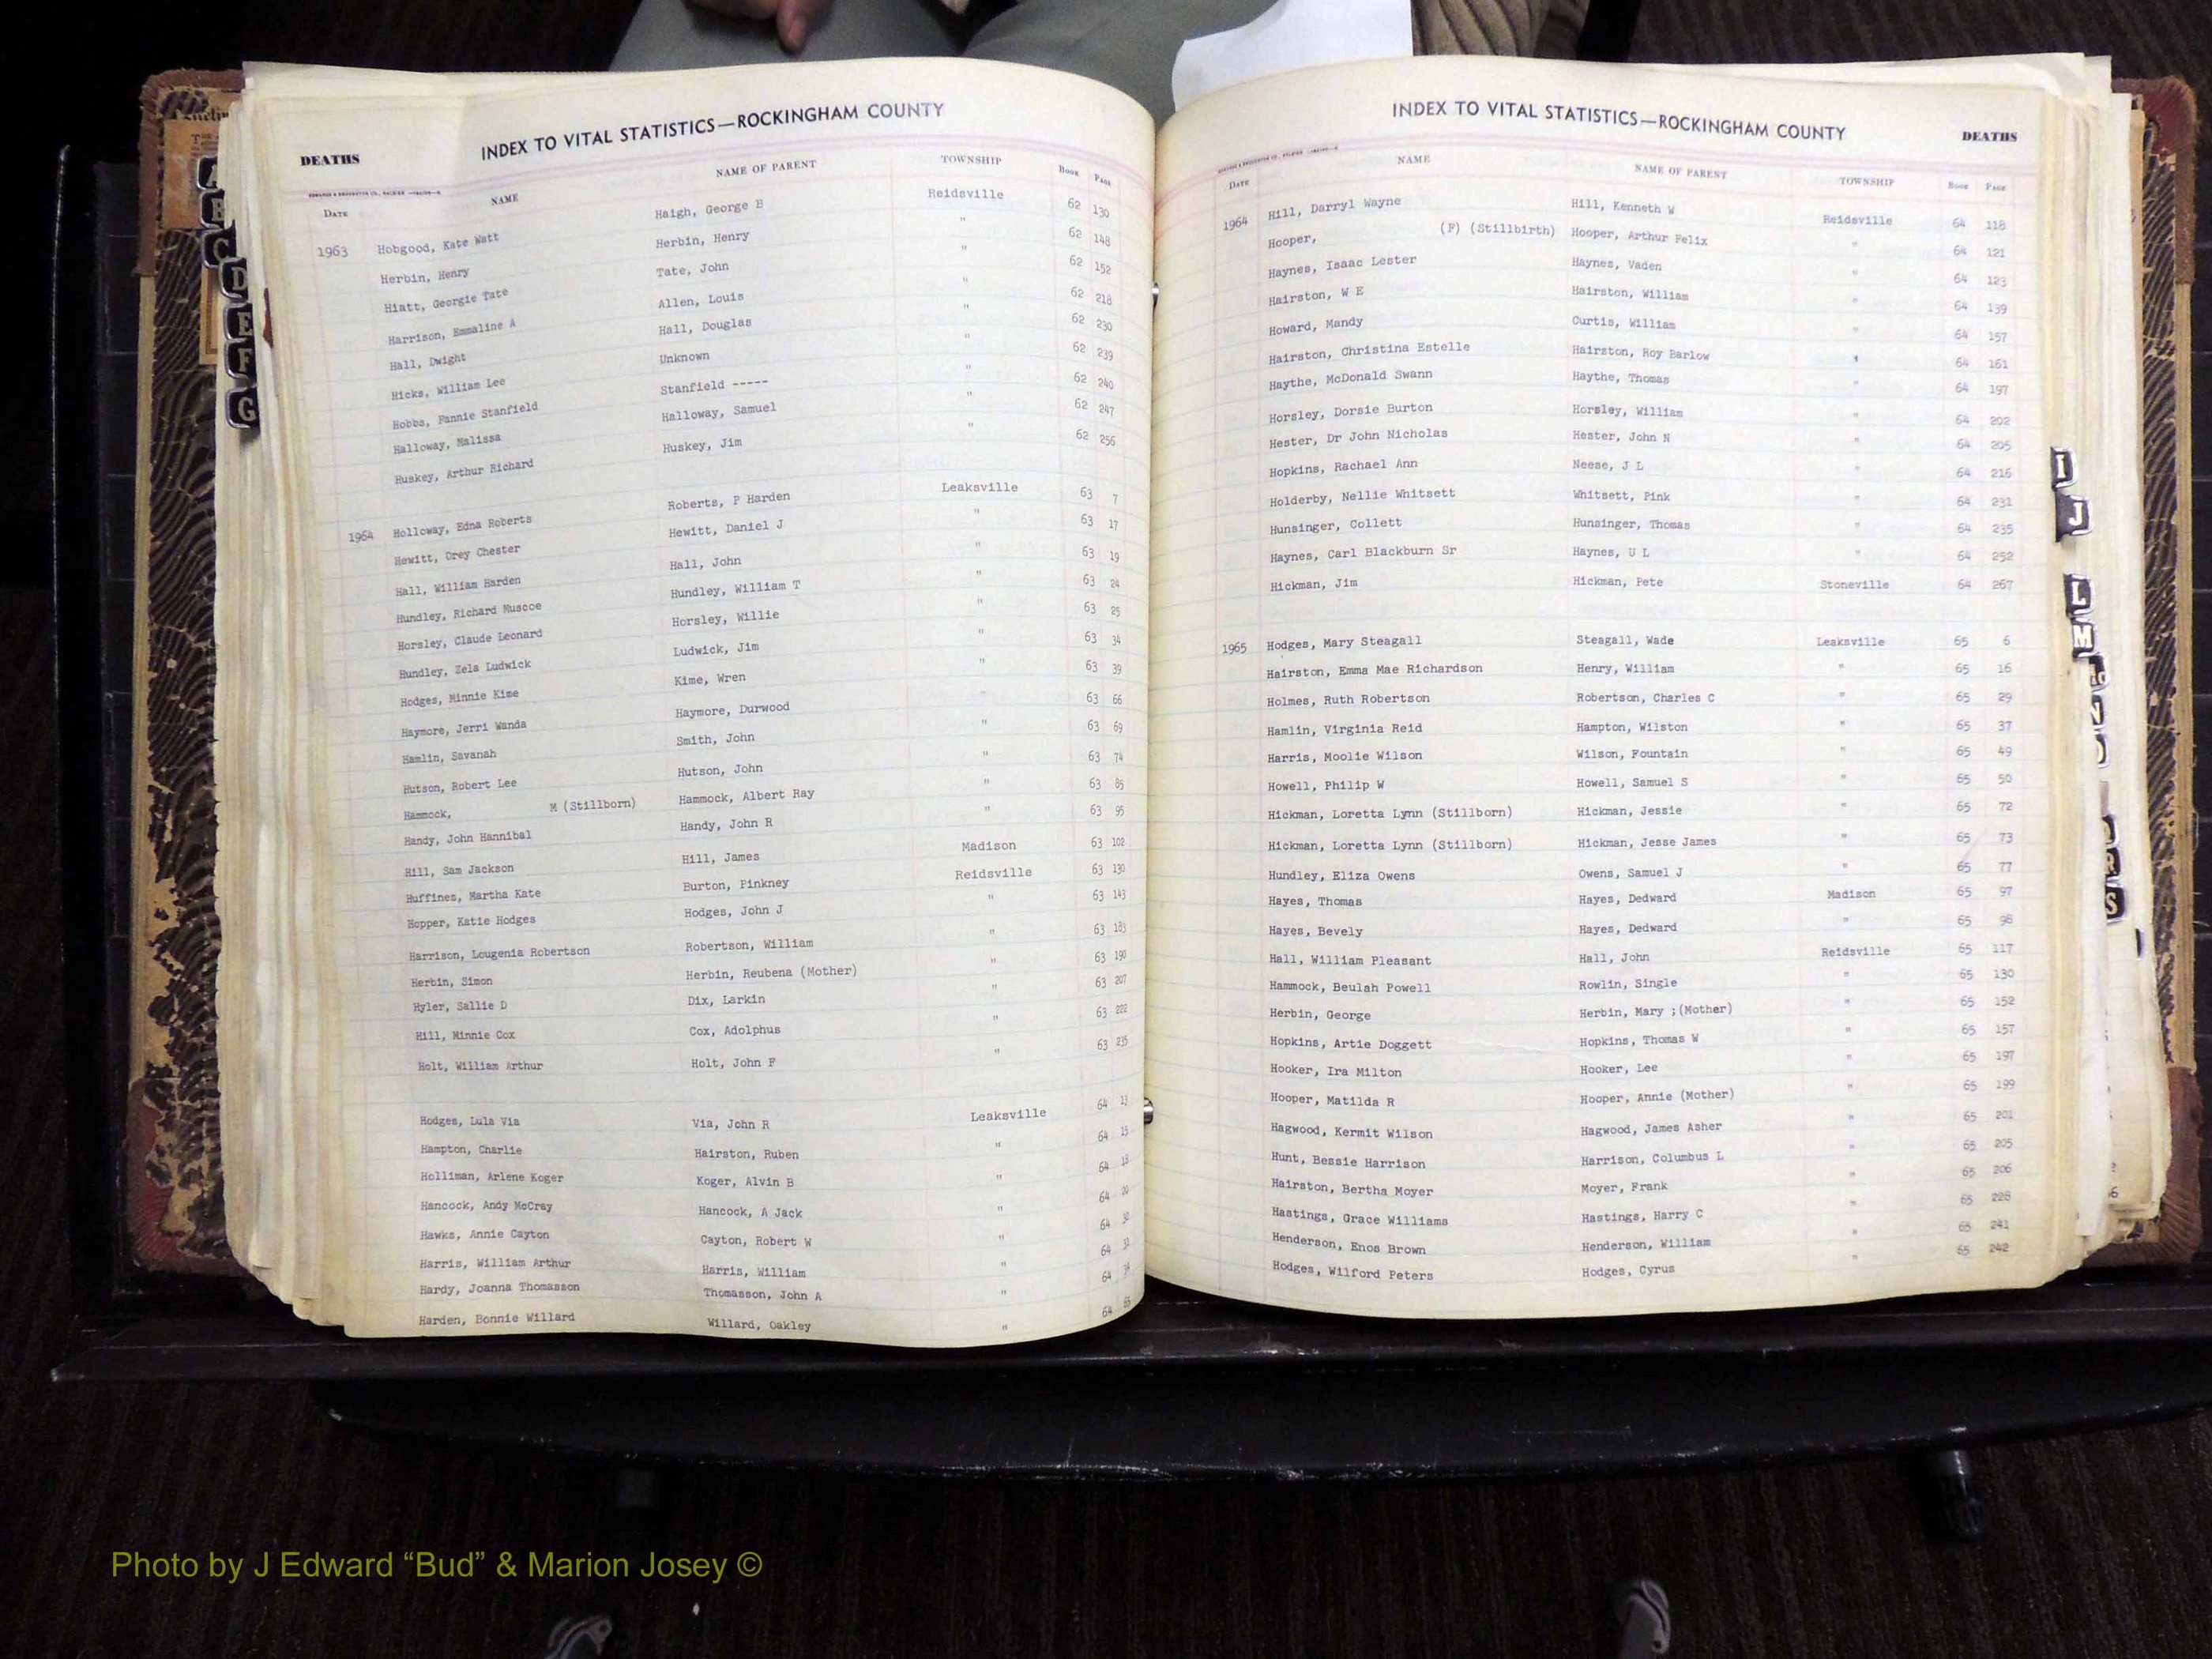 INDEX TO VITAL STATISTICS—ROCKINGHAM COUNTY
DEATHS
DATE NAME NAME OF PARENT TOWNSHIP BOOK PAGE
1963 Hobgood, Kate Watt Haigh, George B Reidsville 62 130
Herbin, Henry Herbin, Henry " 62 148
Hiatt, Georgie Tate Tate, John " 62 152
Harrison, Emmaline A Allen, Louis " 62 218
Hall, Dwight Hall, Douglas " 62 230
Hicks, William Lee Unknown " 62 239
Hobbs, Fannie Stanfield Stanfield ----- " 62 240
Halloway, Malissa Halloway, Samuel " 62 247
Huskey, Arthur Richard Huskey, Jim " 62 256
1964 Holloway, Edna Roberts Roberts, P Harden Leaksville 63 7
Hewitt, Orey Chester Hewitt, Daniel J " 63 17
Hall, William Harden Hall, John " 63 19
Hundley, Richard Muscoe Hundley, William T " 63 24
Horsley, Claude Leonard Horsley, Willie " 63 25
Hundley, Zela Ludwick Ludwick, Jim " 63 34
Hodges, Minnie Kime Kime, Wren " 63 39
Haymore, Jerri Wanda Haymore, Durwood " 63 66
Hamlin, Savanah Smith, John " 63 69
Hutson, Robert Lee Hutson, John " 63 74
Hammock, M (Stillborn) Hammock, Albert Ray " 63 85
Handy, John Hannibal Handy, John R " 63 95
Hill, Sam Jackson Hill, James Madison 63 102
Huffines, Martha Kate Burton, Pinkney Reidsville 63 130
Hopper, Katie Hodges Hodges, John J " 63 143
Harrison, Lougenia Robertson Robertson, William " 63 183
Herbin, Simon Herbin, Reubena (Mother) " 63 190
Hyler, Sallie D Dix, Larkin " 63 207
Hill, Minnie Cox Cox, Adolphus " 63 222
Holt, William Arthur Holt, John F " 63 235
Hodges, Lula Via Via, John R Leaksville 64 13
Hampton, Charlie Hairston, Ruben " 64 15
Holliman, Arlene Koger Koger, Alvin B " 64 18
Hancock, Andy McCray Hancock, A Jack " 64 20
Hawks, Annie Cayton Cayton, Robert W " 64 30
Harris, William Arthur Harris, William " 64
Hardy, Joanna Thomasson Thomasson, John A " 64
Harden, Bonnie Willard Willard, Oakley " 64
INDEX TO VITAL STATISTICS—ROCKINGHAM COUNTY
DEATHS
DATE NAME NAME OF PARENT TOWNSHIP BOOK PAGE
1964 Hill, Darryl Wayne Hill, Kenneth W Reidsville 64 118
Hooper, (F) (Stillbirth) Hooper, Arthur Felix " 64 121
Haynes, Isaac Lester Haynes, Vaden " 64 123
Hairston, W E Hairston, William " 64 139
Howard, Mandy Curtis, William " 64 157
Hairston, Christina Estelle Hairston, Roy Barlow " 64 161
Haythe, McDonald Swann Haythe, Thomas " 64 197
Horsley, Dorsie Burton Horsley, William " 64 202
Hester, Dr John Nicholas Hester, John N " 64 205
Hopkins, Rachael Ann Neese, J L " 64 216
Holderby, Nellie Whitsett Whitsett, Pink " 64 231
Hunsinger, Collett Hunsinger, Thomas " 64 235
Haynes, Carl Blackburn Sr Haynes, U L " 64 252
Hickman, Jim Hickman, Pete Stoneville 64 267
1965 Hodges, Mary Steagall Steagall, Wade Leaksville 65 6
Hairston, Emma Mae Richardson Henry, William " 65 16
Holmes, Ruth Robertson Robertson, Charles C " 65 29
Hamlin, Virginia Reid Hampton, Wilston " 65 37
Harris, Moolie Wilson Wilson, Fountain " 65 49
Howell, Philip W Howell, Samuel S " 65 50
Hickman, Loretta Lynn (Stillborn) Hickman, Jessie " 65 72
Hickman, Loretta Lynn (Stillborn) Hickman, Jesse James " 65 73
Hundley, Eliza Owens Owens, Samuel J " 65 77
Hayes, Thomas Hayes, Dedward Madison 65 97
Hayes, Bevely Hayes, Dedward " 65 98
Hall, William Pleasant Hall, John Reidsville 65 117
Hammock, Beulah Powell Rowlin, Single " 65 130
Herbin, George Herbin, Mary ;(Mother) " 65 152
Hopkins, Artie Doggett Hopkins, Thomas W " 65 157
Hooker, Ira Milton Hooker, Lee " 65 197
Hooper, Matilda R Hooper, Annie (Mother) " 65 199
Hagwood, Kermit Wilson Hagwood, James Asher " 65 201
Hunt, Bessie Harrison Harrison, Columbus L " 65 205
Hairston, Bertha Moyer Moyer, Frank " 65 206
Hastings, Grace Williams Hastings, Harry C " 65 228
Henderson, Enos Brown Henderson, William " 65 241
Hodges, Wilford Peters Hodges, Cyrus " 65 242
B
C
D
E
F
G
I
J
L
M
R
S
Photo by J Edward “Bud” & Marion Josey ©